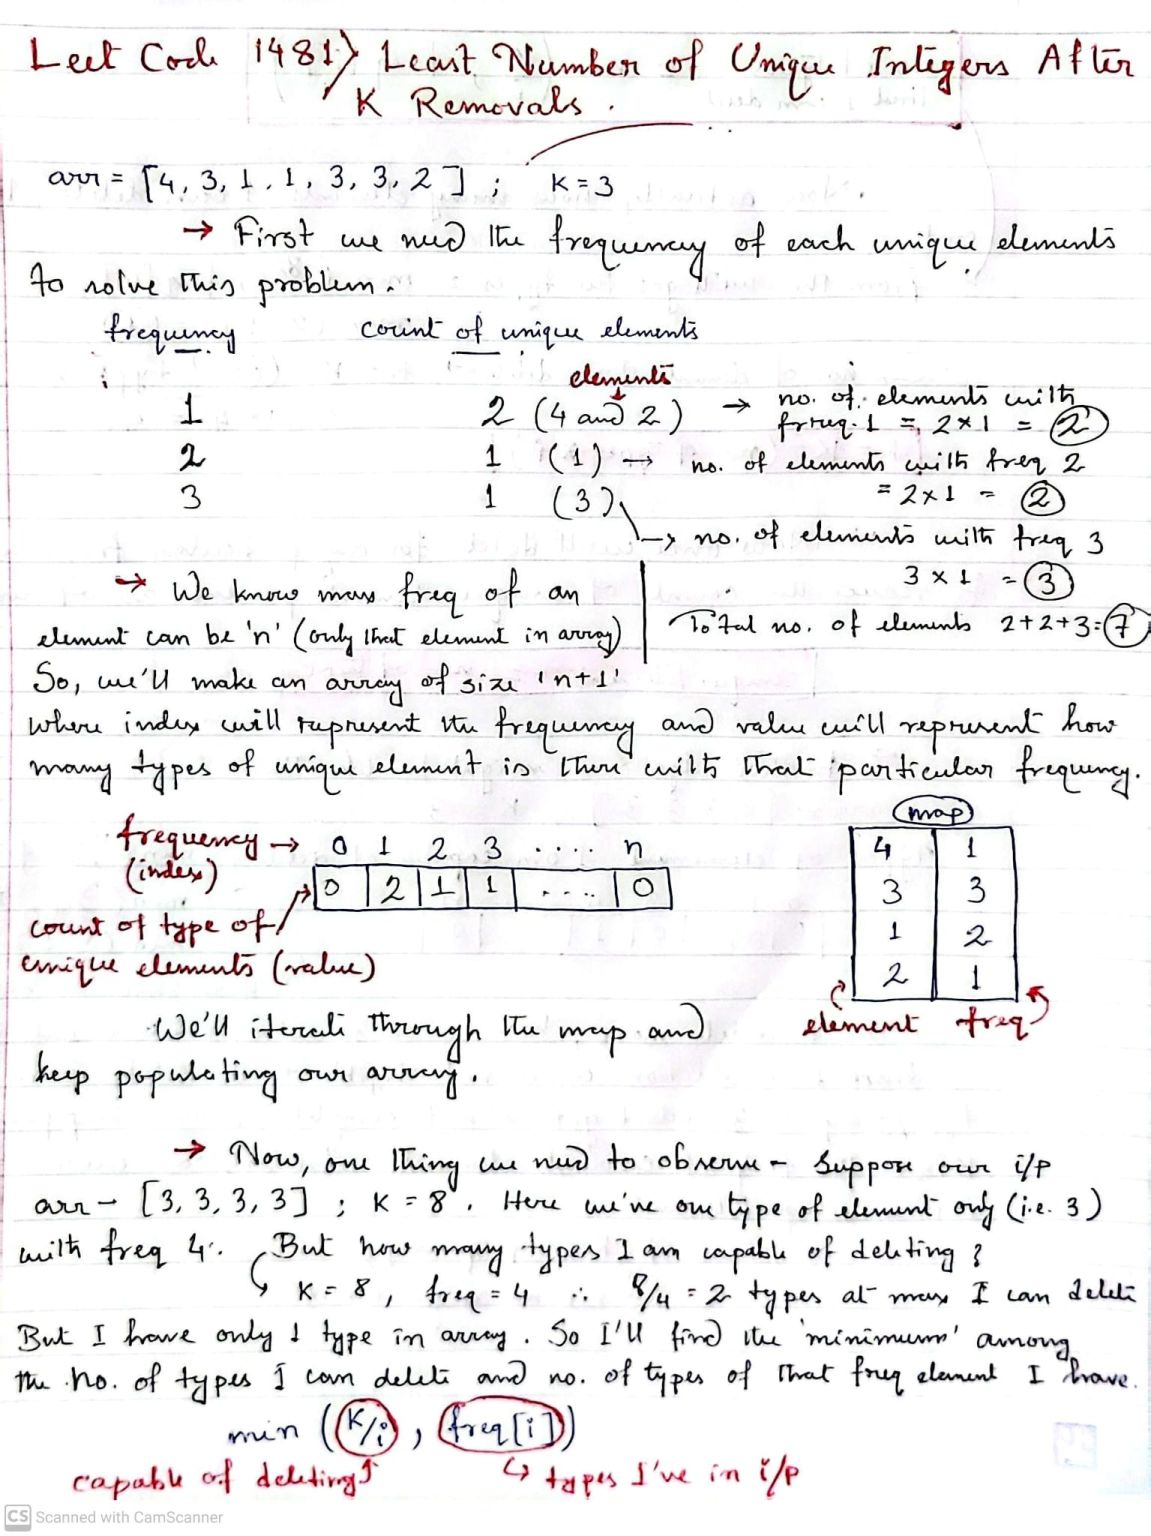 Leet Code 1481) Least Number of Unique Integers After
K Removals.
arr = [4, 3, 1, 1, 3, 3, 2] ; K = 3
→ First we need the frequency of each unique elements
to solve this problem.
frequency count of unique elements
i elements
1 2 (4 and 2) → no. of elements with
freq. 1 = 2×1 = 2
2 1 (1) → no. of elements with freq 2
= 2×1 = 2
3 1 (3)
→ no. of elements with freq 3
3 × 1 = 3
Total no. of elements 2+2+3=7
→ We know max freq of an
element can be 'n' (only that element in array)
So, we'll make an array of size 'n+1'
where index will represent the frequency and value will represent how
many types of unique element is there with that particular frequency.
frequency → 0 1 2 3 .... n
(index)
0 2 1 1 .... 0
count of type of
unique elements (value)
map
4 1
3 3
1 2
2 1
element freq
We'll iterate through the map and
keep populating our array.
→ Now, one thing we need to observe - Suppose our i/p
arr - [3, 3, 3, 3] ; K = 8. Here we've one type of element only (i.e. 3)
with freq 4. But how many types I am capable of deleting ?
K = 8, freq = 4 ∴ 8/4 = 2 types at max I can delete
But I have only 1 type in array. So I'll find the 'minimum' among
the no. of types I can delete and no. of types of that freq element I have.
min (K/i, freq[i])
capable of deleting
↳ types I've in i/p
CS Scanned with CamScanner